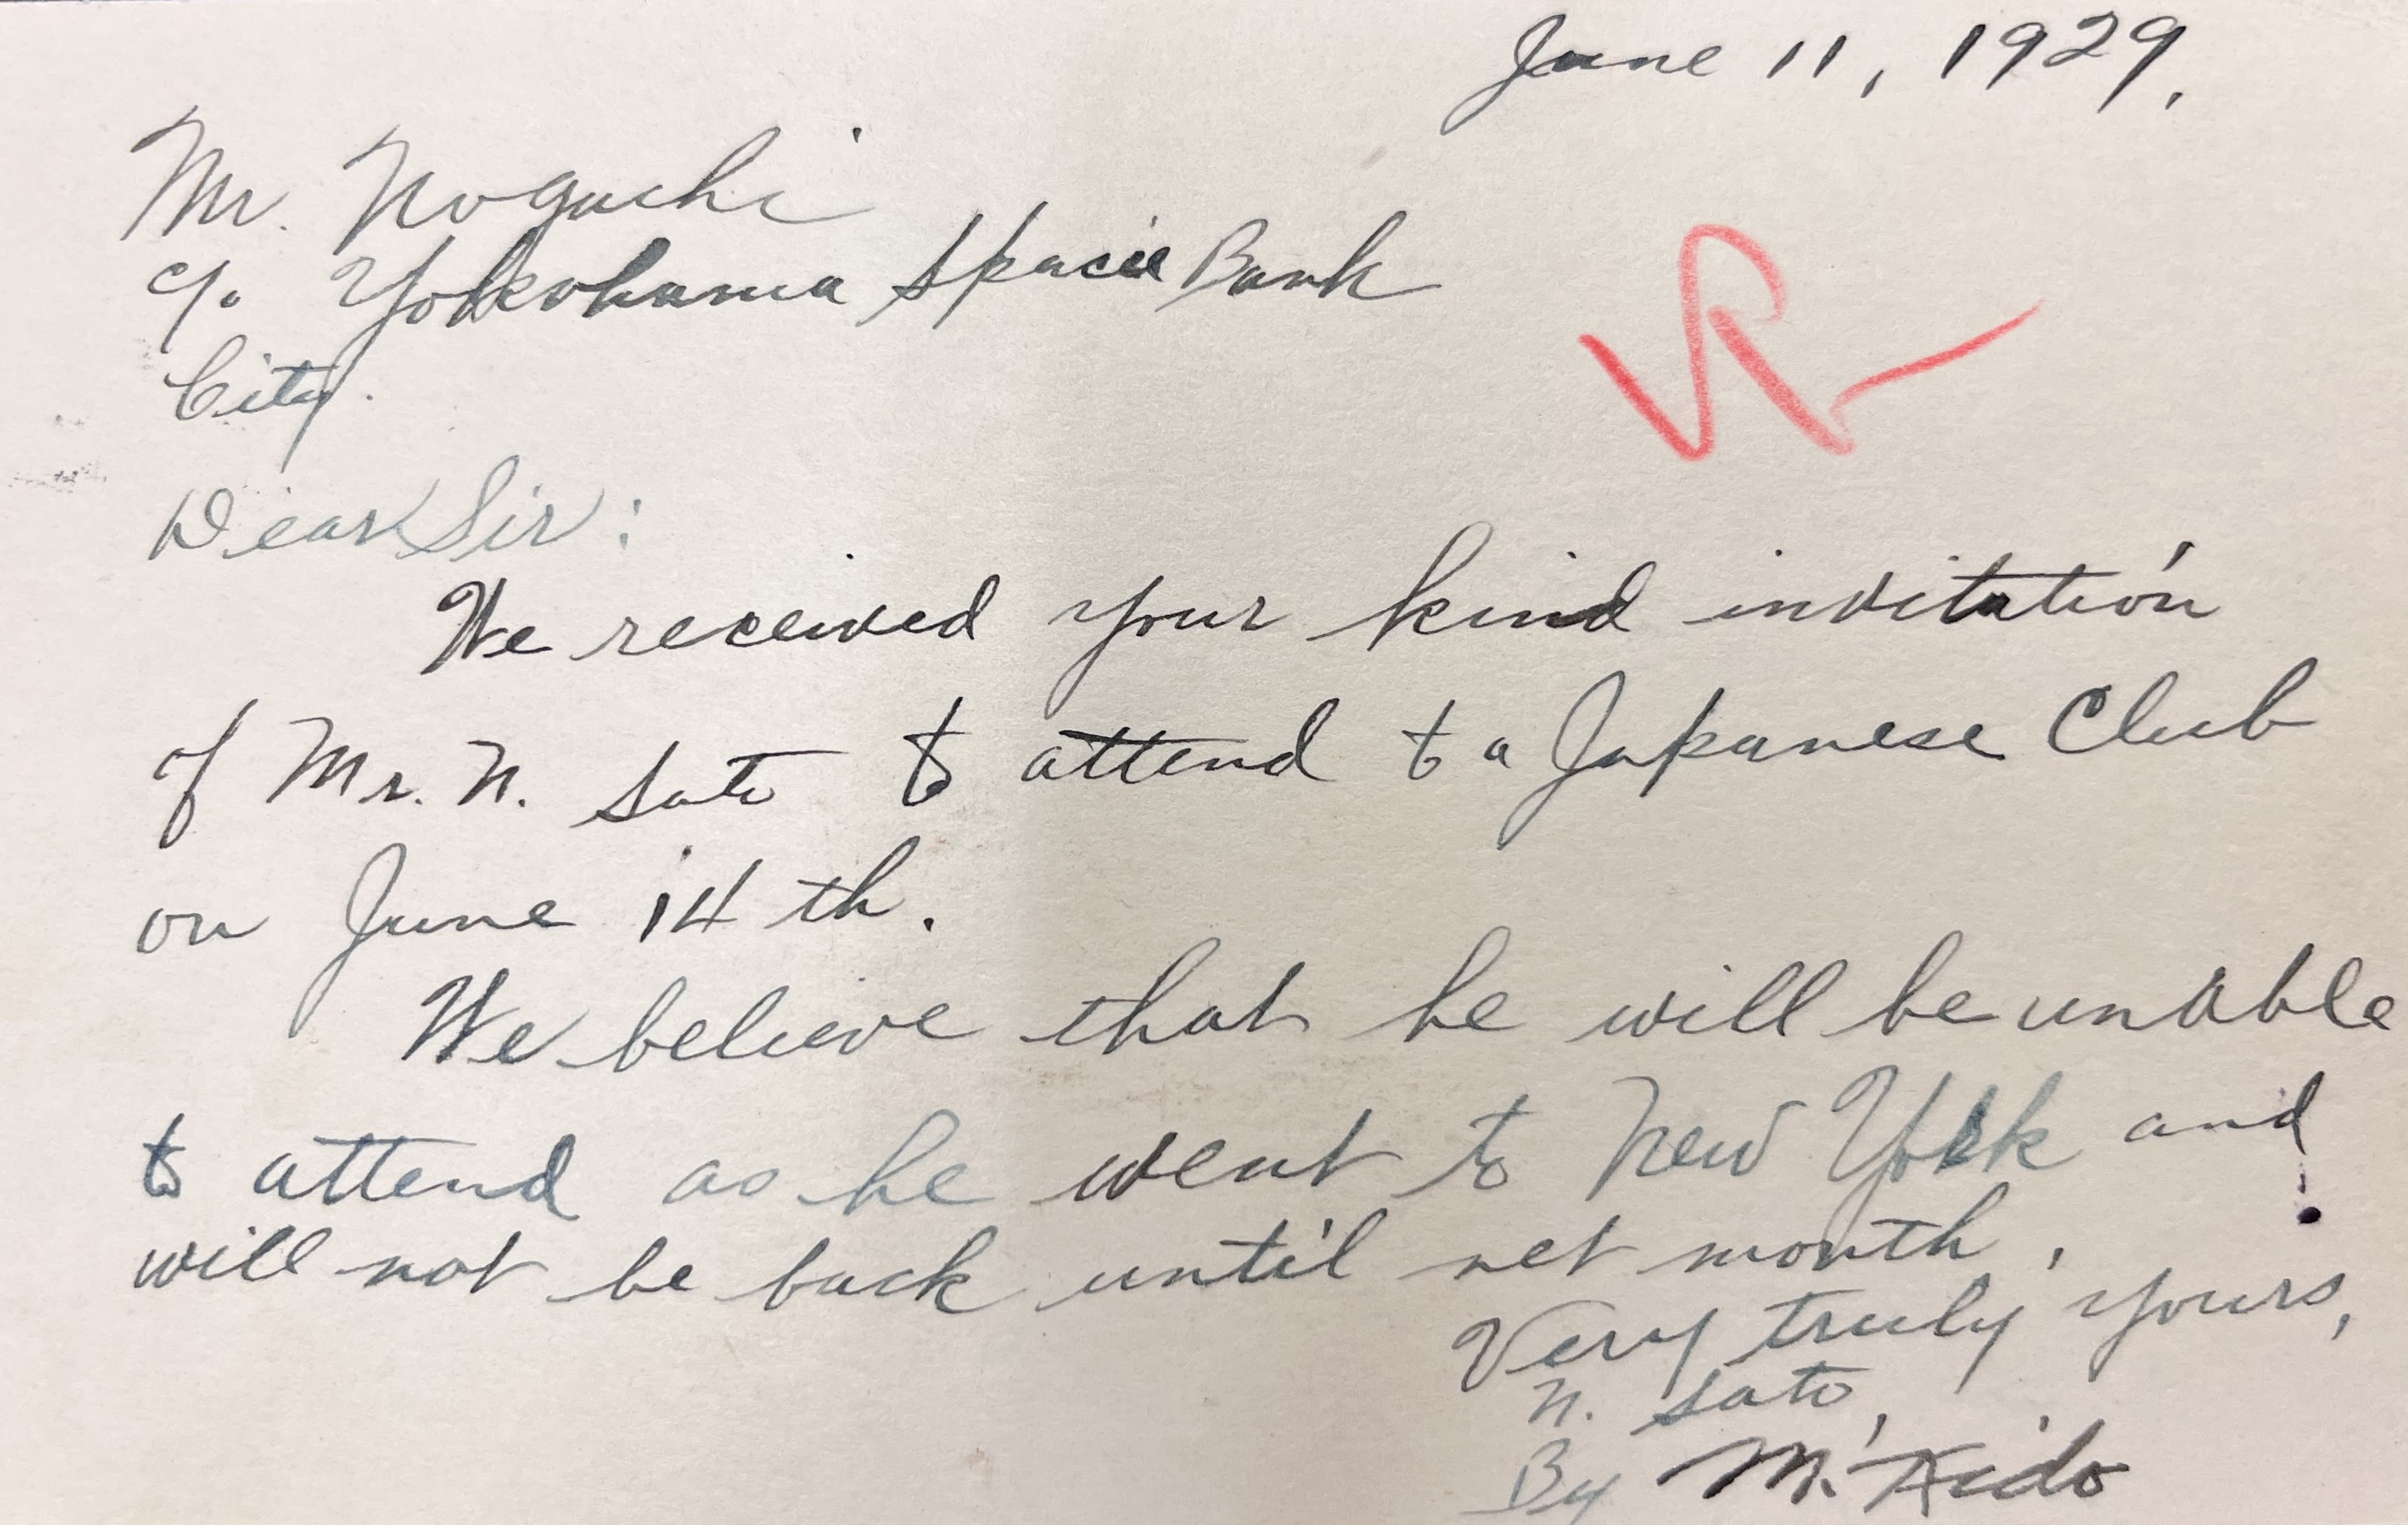 June 11, 1929.
Mr. Noguchi
c/o Yokohama Specie Bank
City.
Dear Sir:
We received your kind invitation
of Mr. N. Sato to attend to a Japanese Club
on June 14 th.
We believe that he will be unable
to attend as he went to New York and
will not be back until net month.
Very truly yours,
N. Sato,
By M. Kido